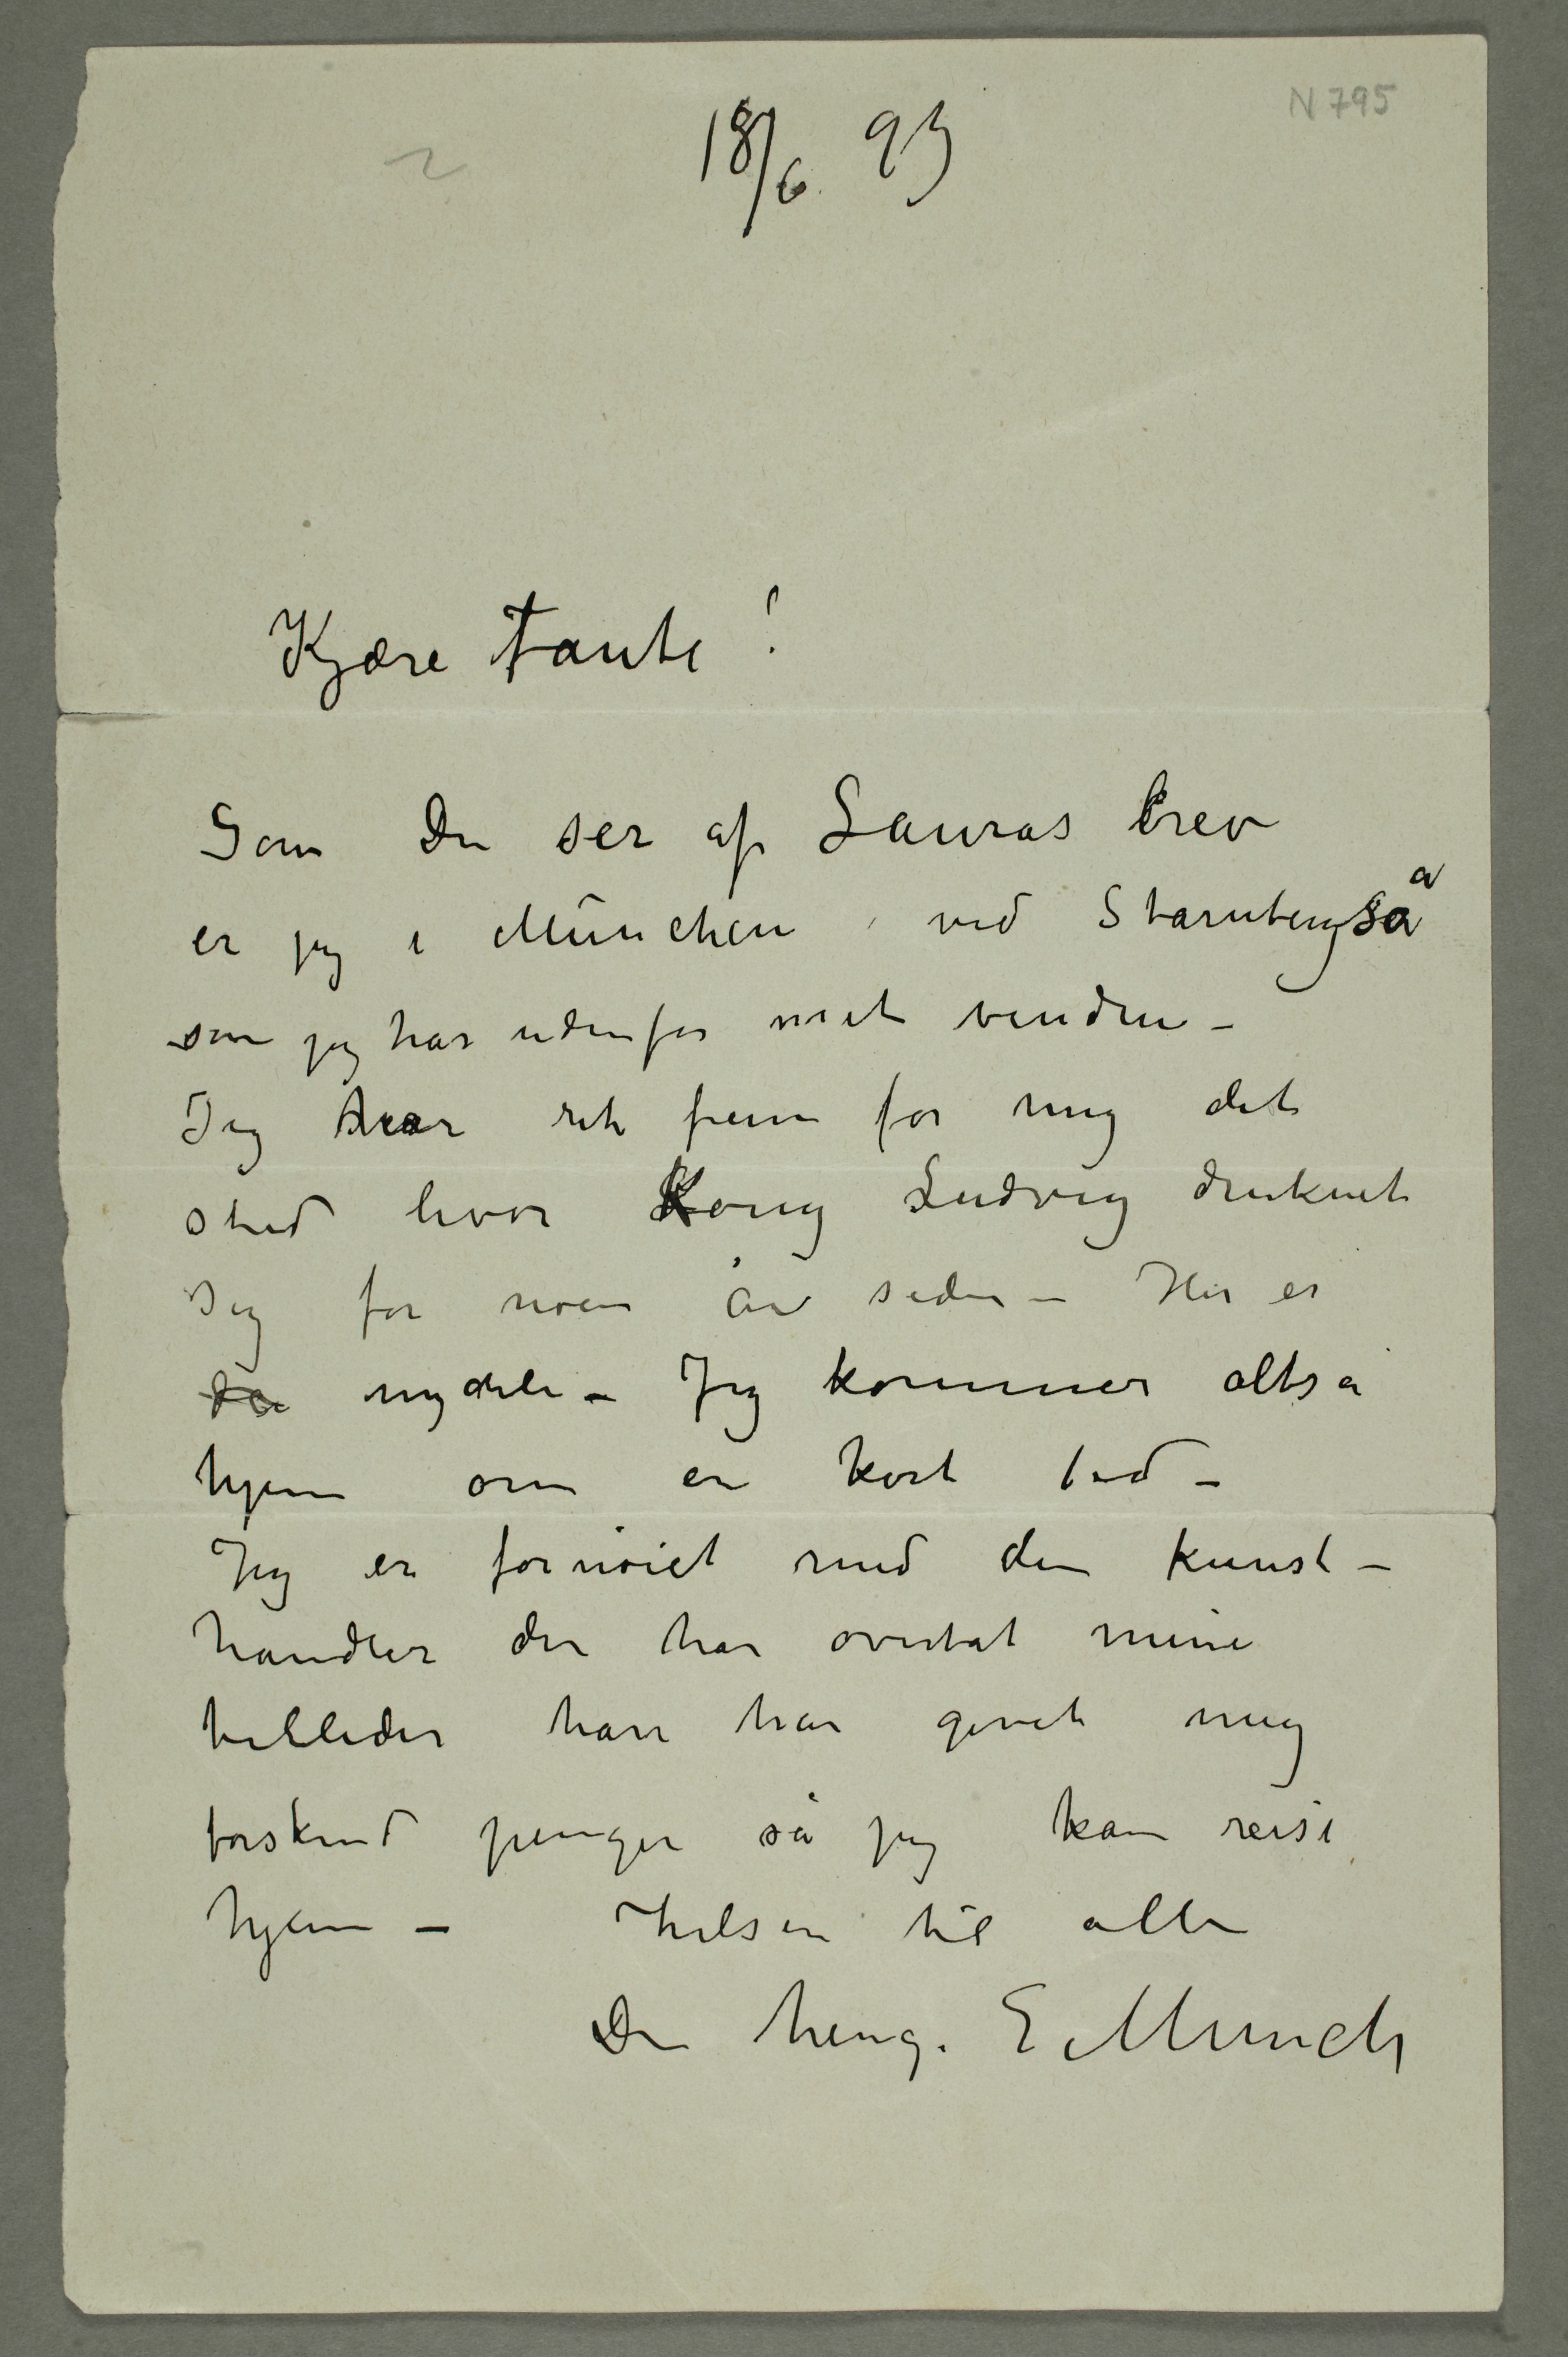 N 795
2
18/6 93
Kjære Tante!
Som Du ser af Lauras brev
er jeg i München, ved Starnbergsø
som jeg har udenfor mit vindu –
Jeg har ret frem for mig det
sted hvor Kong Ludvig druknet
sig for noen år siden – Her er
nydeli – Jeg kommer altså
hjem om en kort tid –
Jeg er fornøiet med den kunst-
handler der har overtat mine
billeder han har givet mig
forskud penger så jeg kan reise
hjem – Hilsen til alle
Din heng. E Munch